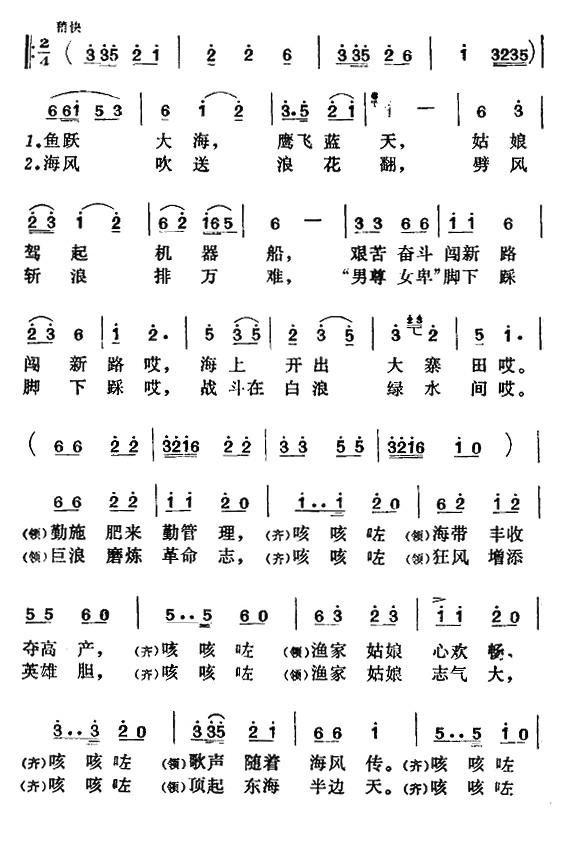 稍快
2/4 ( 3 35 2 1 | 2 2 6 | 3 35 2 6 | 1 3235 |
6 61 5 3 | 6 1 2 | 3·5 2 1 | 1 — | 6 3 |
1.鱼跃 大海， 鹰飞蓝 天， 姑娘
2.海风 吹送 浪花翻， 劈风
2 3 1 2 | 6 2 165 | 6 — | 3 3 6 6 | 1 1 6 |
驾 起 机器 船， 艰苦奋斗 闯新路
斩浪 排万 难， “男尊女卑”脚下踩
2 3 6 | 1 2. | 5 3 5 | 2 3 5 | 3 2 | 5 1. |
闯 新 路哎， 海上 开出 大寨 田哎。
脚 下 踩哎， 战斗在 白浪 绿水 间哎。
( 6 6 2 2 | 3216 2 2 | 3 3 5 5 | 3216 1 0 ) |
6 6 2 2 | 1 1 2 0 | 1··1 2 0 | 6 2 1 2 |
(领)勤施 肥来 勤管 理， (齐)咳 咳 咗 (领)海带 丰收
(领)巨浪 磨炼 革命 志， (齐)咳 咳 咗 (领)狂风 增添
5 5 6 0 | 5··5 6 0 | 6 3 2 3 | 1 1 2 0 |
夺高 产， (齐)咳 咳 咗 (领)渔家 姑娘 心欢 畅、
英雄 胆， (齐)咳 咳 咗 (领)渔家 姑娘 志气 大，
3··3 2 0 | 3 35 2 1 | 6 6 1 | 5··5 1 0 |
(齐)咳 咳 咗 (领)歌声 随着 海风 传。(齐)咳 咳 咗
(齐)咳 咳 咗 (领)顶起 东海 半边 天。(齐)咳 咳 咗